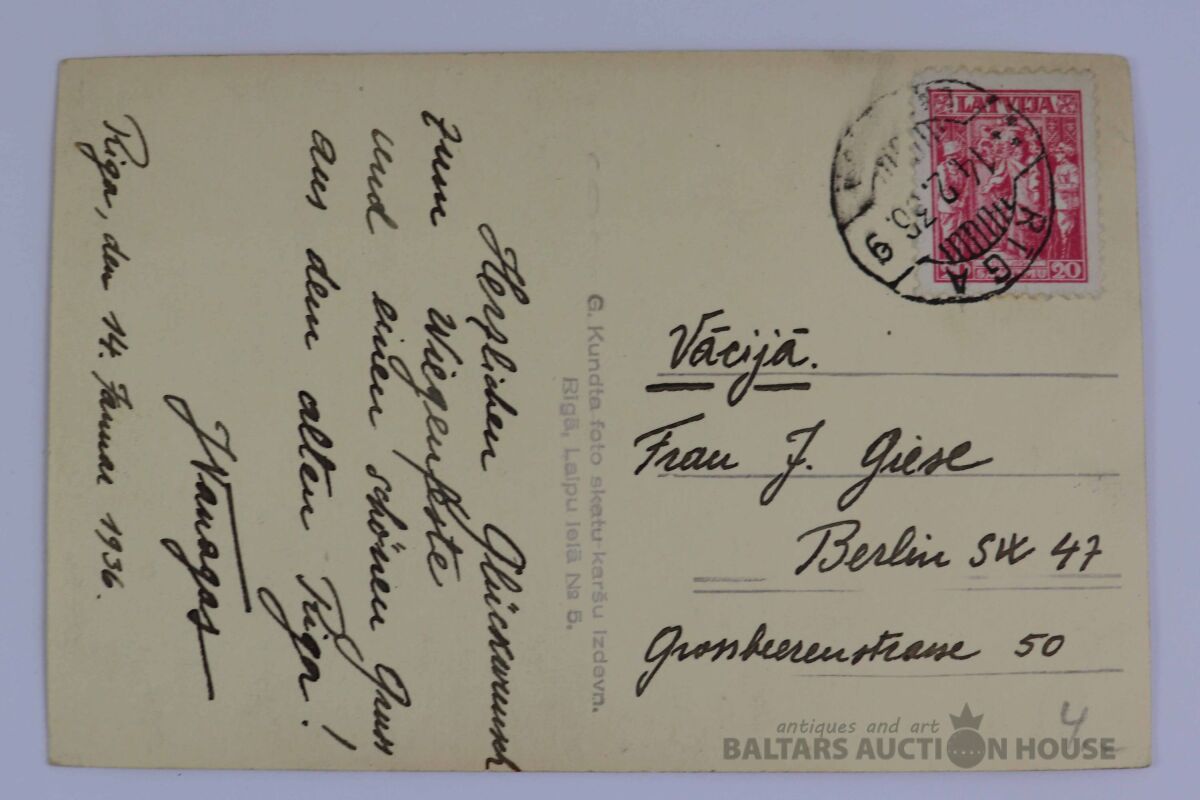 Herzlichen Glückwunsch
zum Wiegenfeste
und einen schönen Gruss
aus dem alten Riga!
JWanagas
Riga, den 14. Januar 1936.
G. Kundta foto skatu karšu izdevn.
Rīgā, Laipu ielā № 5.
LATVIJA 20
20
RIGA 9
14.2.36.
Vācijā.
Frau J. Giese
Berlin SW 47
Grossbeerenstrasse 50
4
antiques and art
BALTARS AUCTION HOUSE